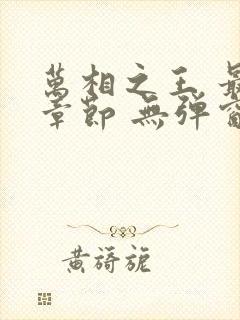 萬相之王 最
章節 無彈窗
黃旖旎